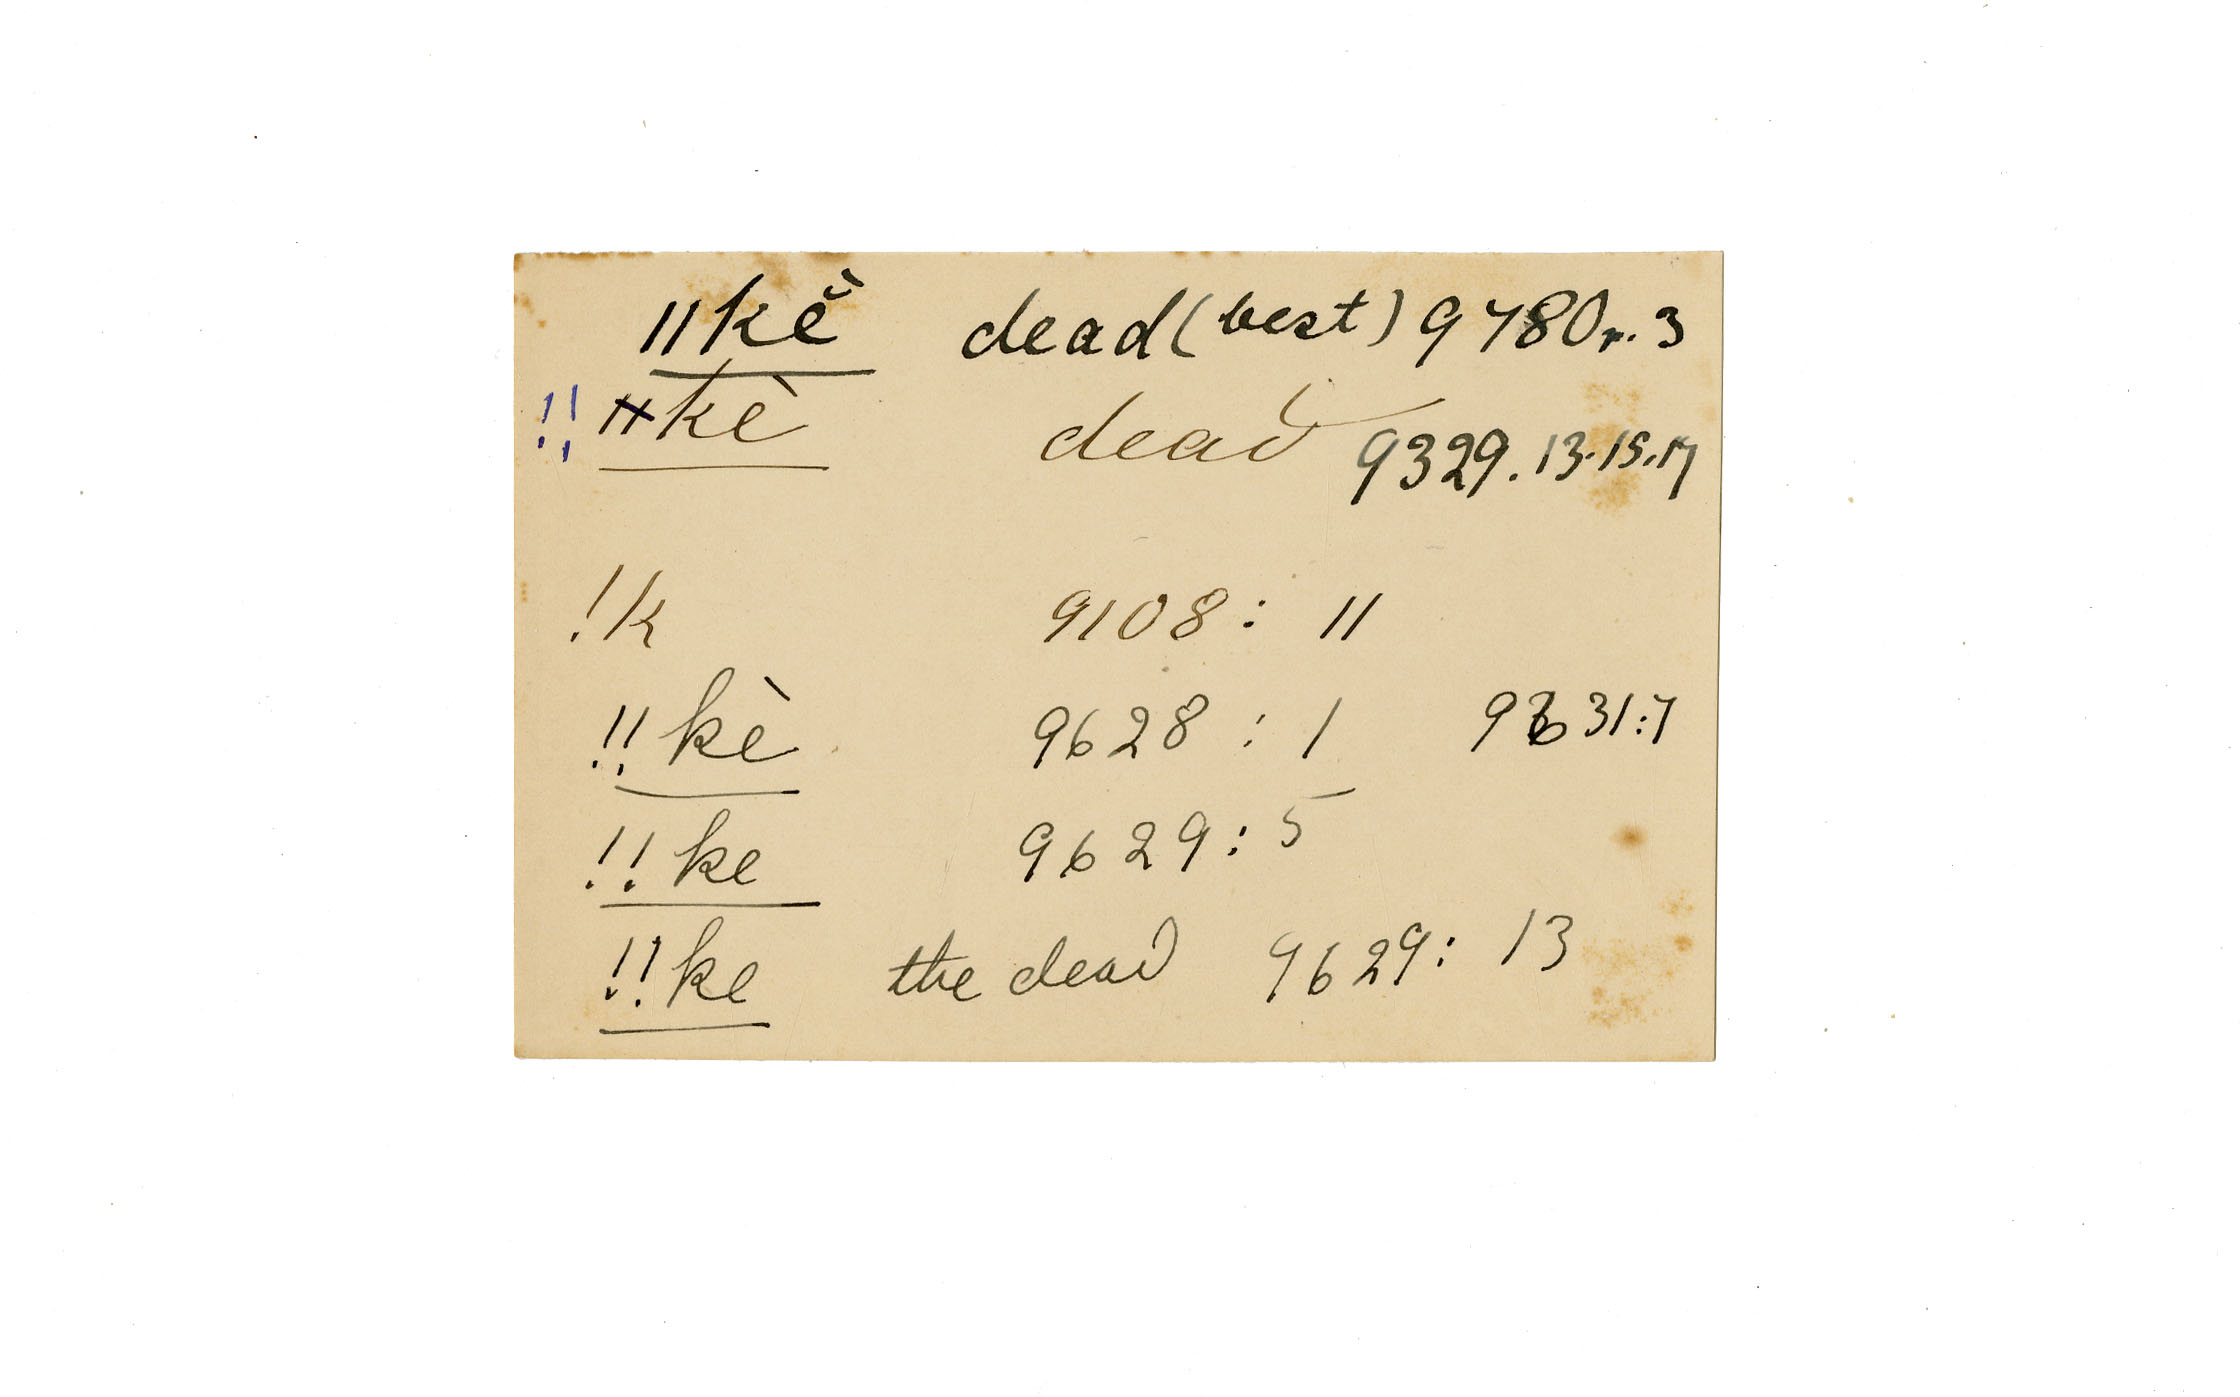 ǁkĕ̀ dead (best) 9780r. 3
!! ǁkè dead 9329. 13. 15. 17
!k 9108 : 11
!!kè 9628 : 1 9631:7
!!ke 9629 : 5
!!ke the dead 9629 : 13